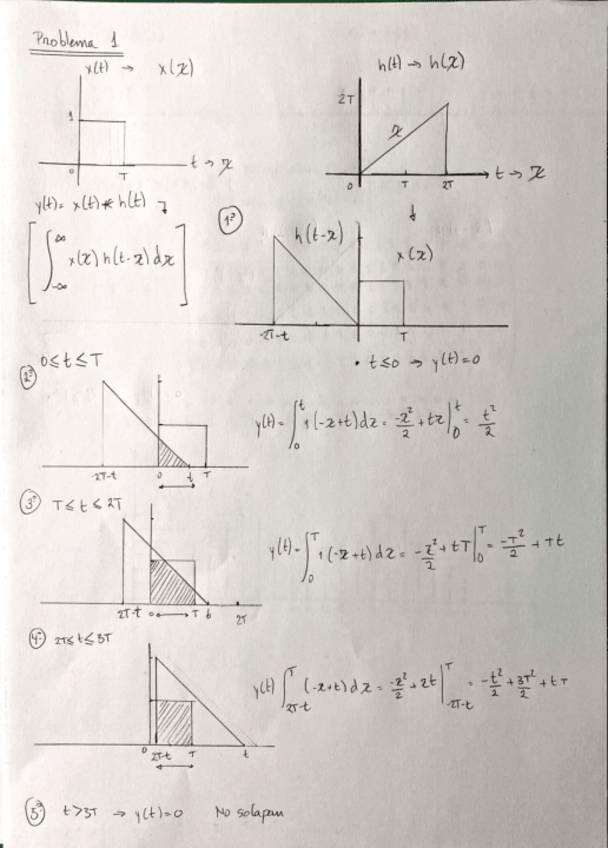 Problema 1
x(t) → x(z)
h(t) → h(z)
1
0 T t → z
2T
z
0 T 2T t → z
y(t) = x(t) * h(t)
[∫_{-∞}^{∞} x(z) h(t-z) dz]
1º
h(t-z) x(z)
-2T-t T
• t≤0 → y(t)=0
2º 0≤t≤T
2T-t 0 t T
y(t) = ∫_0^t 1(-z+t)dz = -z²/2 + tz |_0^t = t²/2
3º T≤t≤2T
2T-t 0 T t 2T
y(t) = ∫_0^T 1(-z+t)dz = -z²/2 + tT |_0^T = -T²/2 + Tt
4º 2T≤t≤3T
0 2T-t T t
y(t) ∫_{2T-t}^T (-z+t)dz = -z²/2 + zt |_{-2T-t}^T = -t²/2 + 3T²/2 + tT
5º t>3T → y(t)=0 No solapan